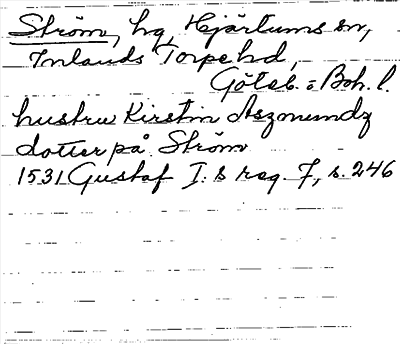 Ström, hg, Hjärtums sn,
Inlands Torpe hd,
Göteb. o Boh. l.
hustru Kirstin Aszmundz
dotter på Ström
1531 Gustaf I:s reg. 7, s. 246